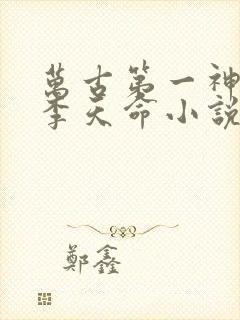 萬古第一神
李天命小說
鄭鑫